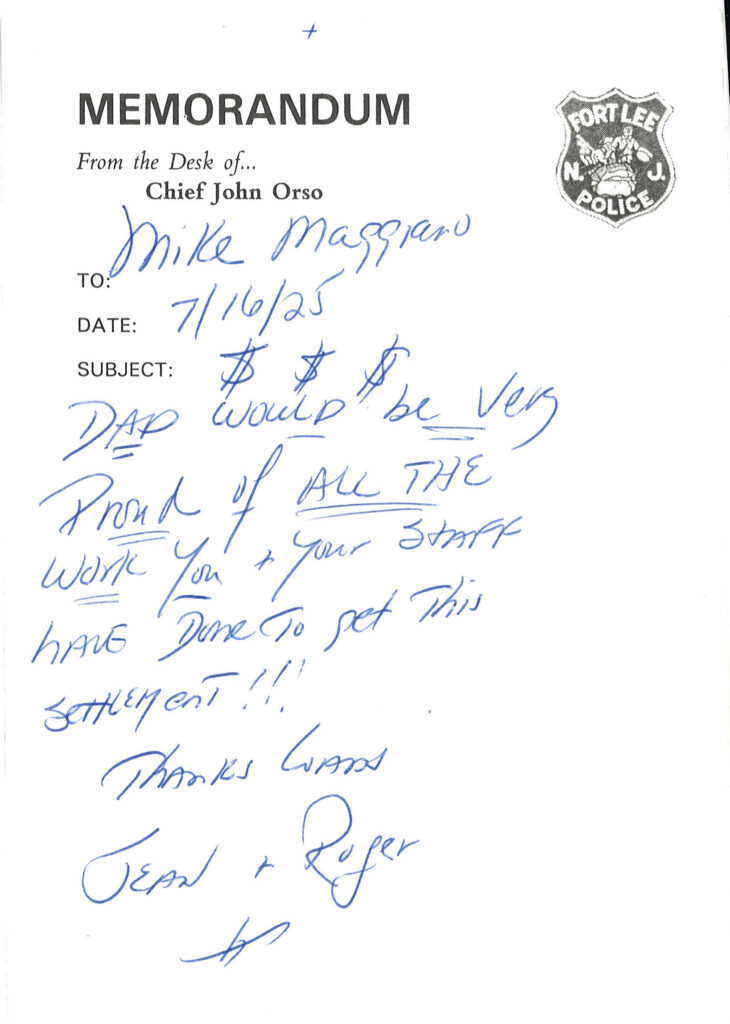 +
MEMORANDUM
FORT LEE
N. J.
POLICE
From the Desk of...
Chief John Orso
TO: Mike Maggiano
DATE: 7/16/25
SUBJECT: $ $ $
DAD WOULD be Very
Proud of ALL THE
WORK You + Your STAFF
HAVE DONE TO get This
SETTLEMENT!!!
THANKS LOADS
JEAN + Roger